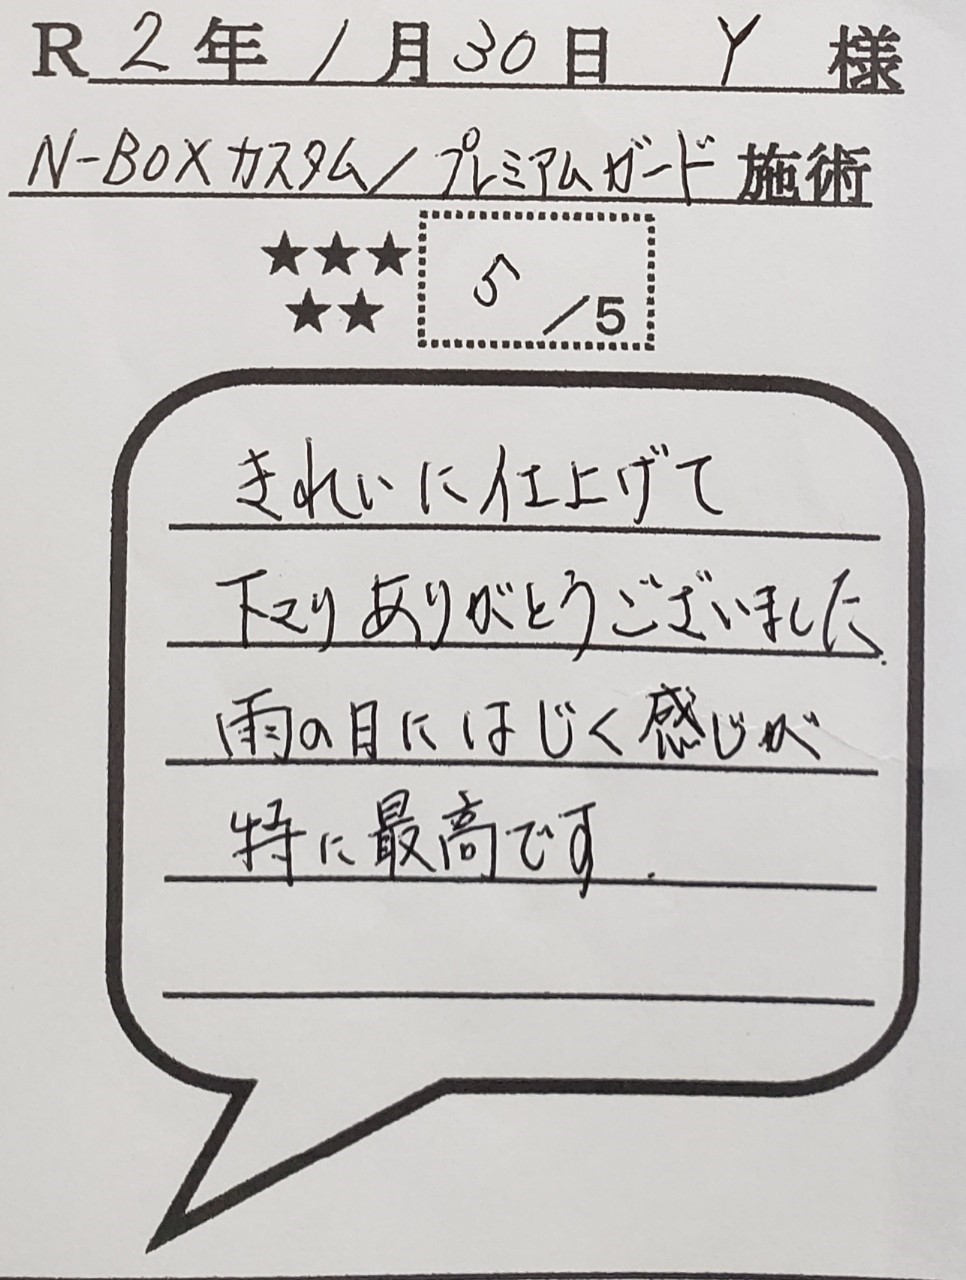 R 2年 1月30日 Y 様
N-BOXカスタム/プレミアムガード 施術
★★★
★★
5/5
きれいに仕上げて
下さりありがとうございました.
雨の日にはじく感じが
特に最高です.